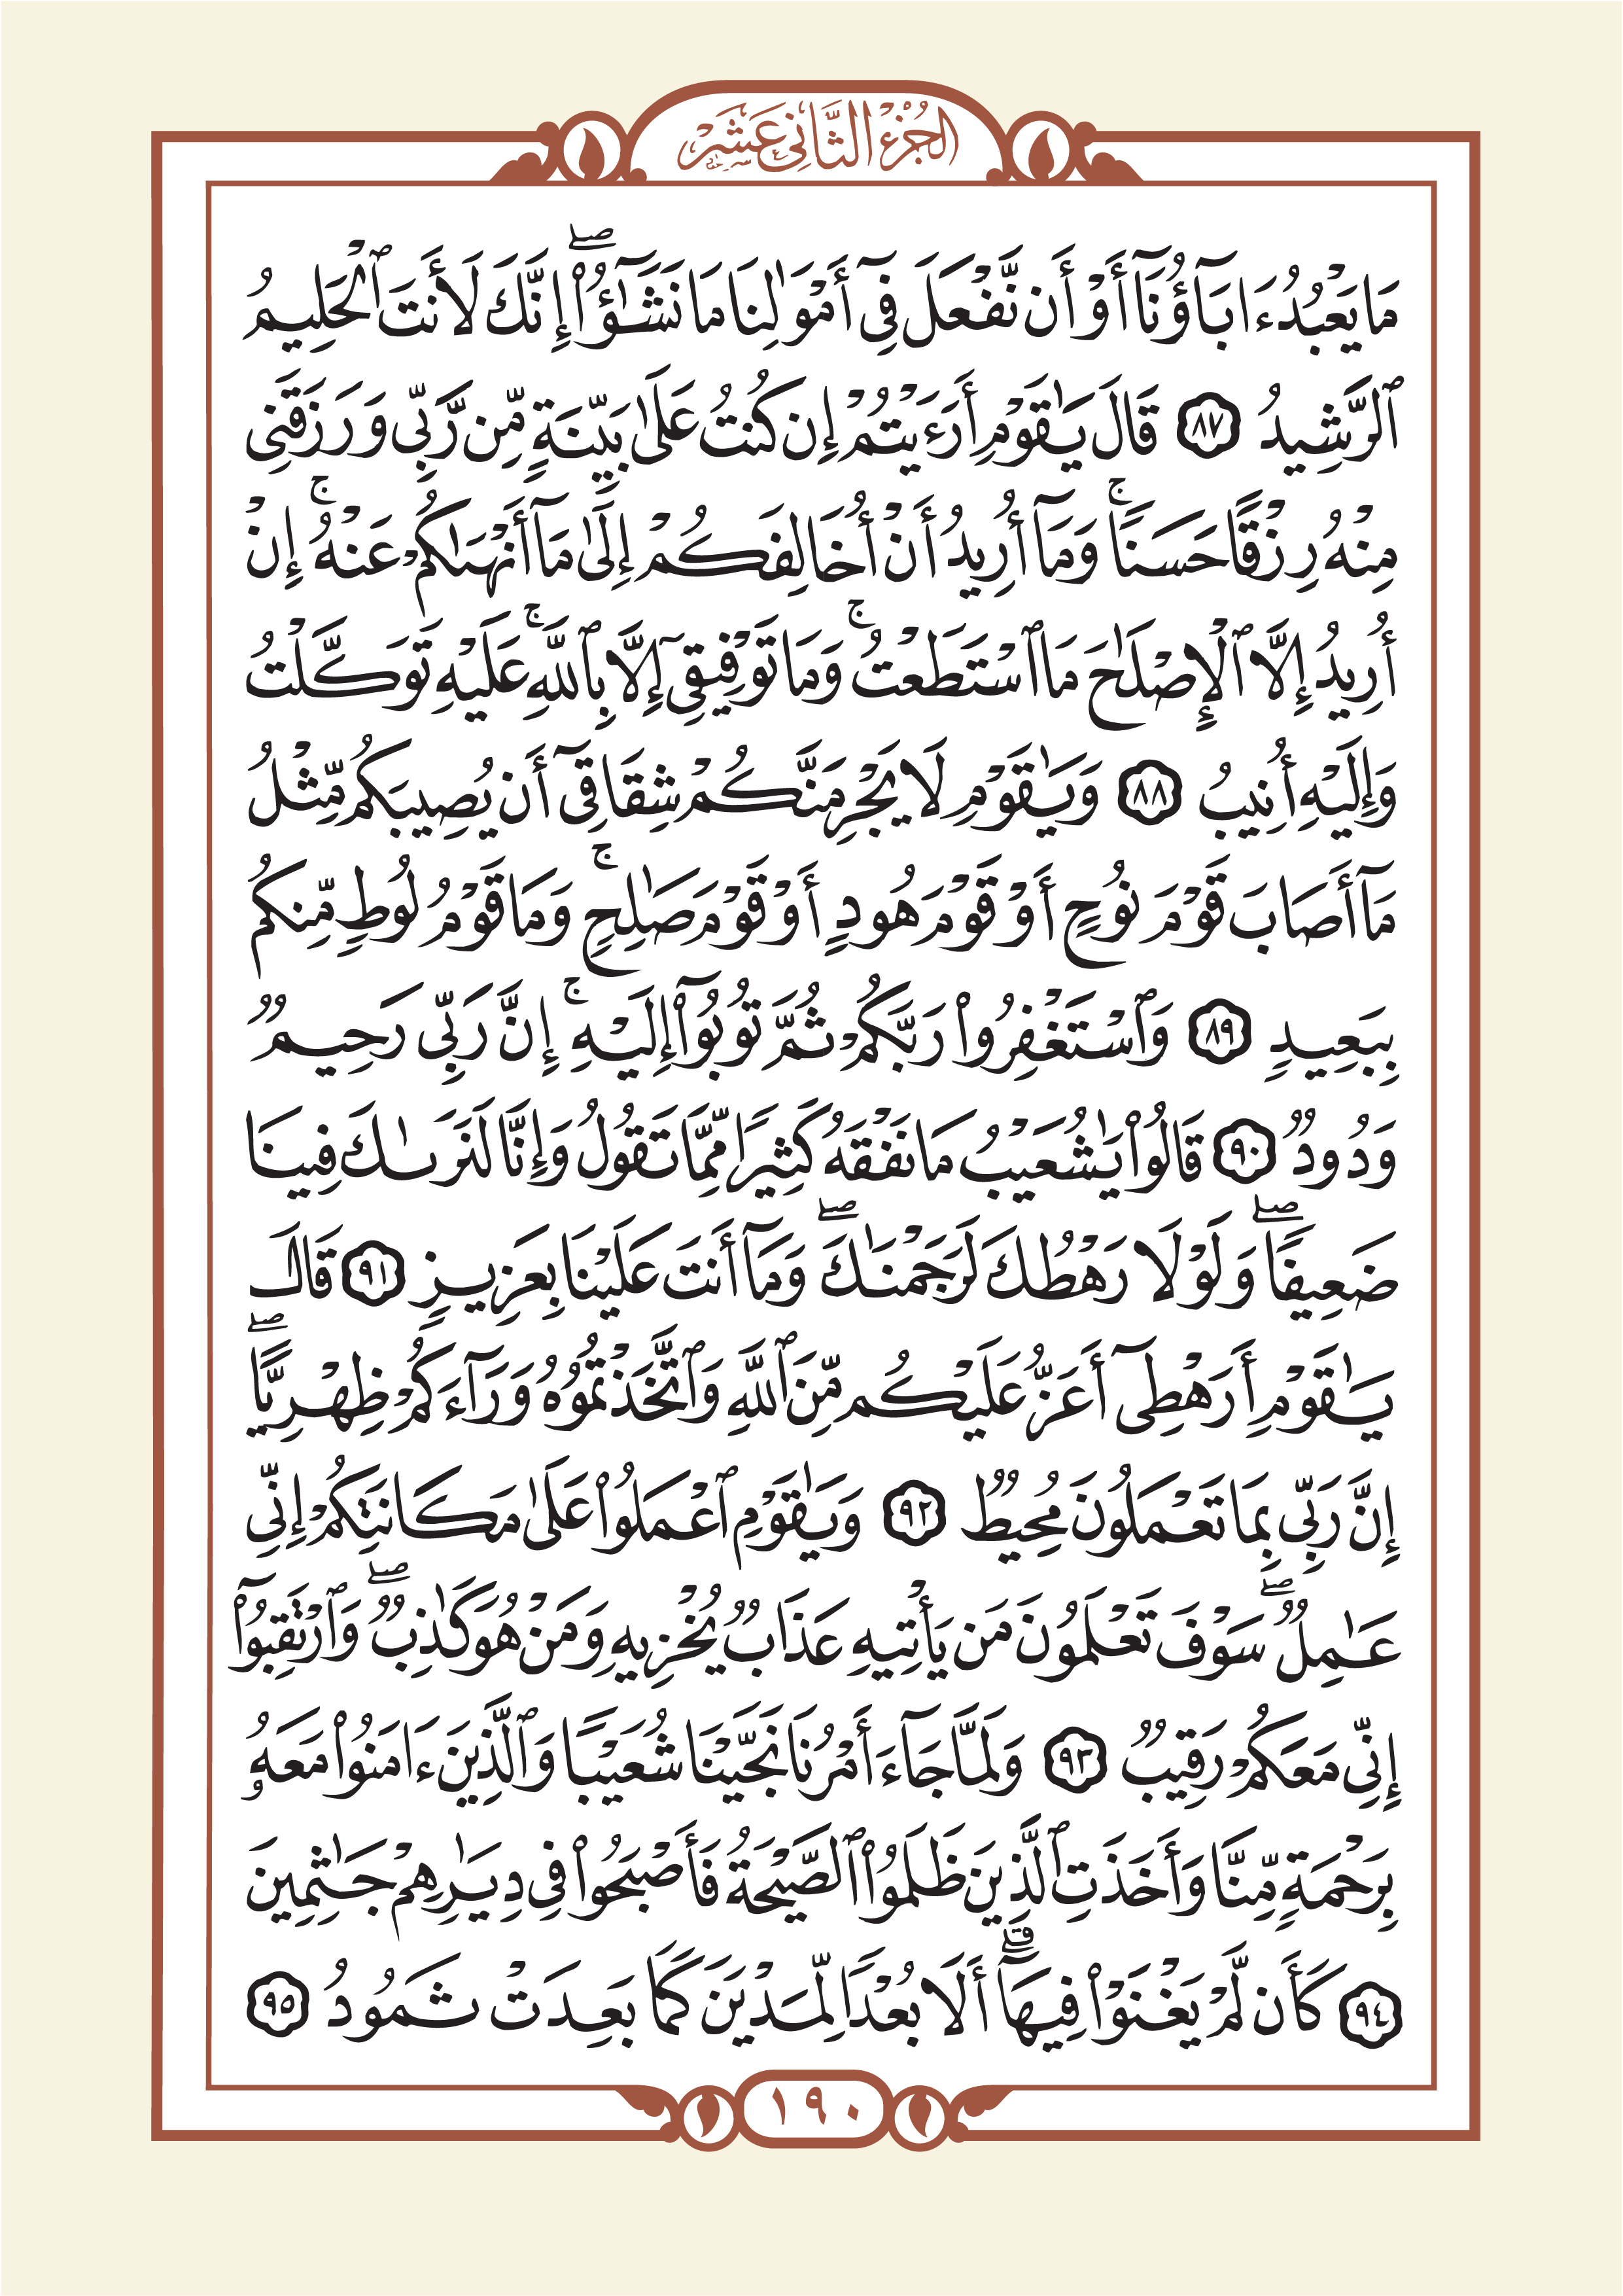 الجزء الثاني عشر
مَا يَعْبُدُ ءَابَآؤُنَآ أَوْ أَن نَّفْعَلَ فِىٓ أَمْوَٰلِنَا مَا نَشَـٰٓؤُا۟ ۖ إِنَّكَ لَأَنتَ ٱلْحَلِيمُ
ٱلرَّشِيدُ ٨٧ قَالَ يَـٰقَوْمِ أَرَءَيْتُمْ إِن كُنتُ عَلَىٰ بَيِّنَةٍ مِّن رَّبِّى وَرَزَقَنِى
مِنْهُ رِزْقًا حَسَنًا ۚ وَمَآ أُرِيدُ أَنْ أُخَالِفَكُمْ إِلَىٰ مَآ أَنْهَىٰكُمْ عَنْهُ ۚ إِنْ
أُرِيدُ إِلَّا ٱلْإِصْلَـٰحَ مَا ٱسْتَطَعْتُ ۚ وَمَا تَوْفِيقِىٓ إِلَّا بِٱللَّهِ ۚ عَلَيْهِ تَوَكَّلْتُ
وَإِلَيْهِ أُنِيبُ ٨٨ وَيَـٰقَوْمِ لَا يَجْرِمَنَّكُمْ شِقَاقِىٓ أَن يُصِيبَكُم مِّثْلُ
مَآ أَصَابَ قَوْمَ نُوحٍ أَوْ قَوْمَ هُودٍ أَوْ قَوْمَ صَـٰلِحٍ ۚ وَمَا قَوْمُ لُوطٍ مِّنكُم
بِبَعِيدٍ ٨٩ وَٱسْتَغْفِرُوا۟ رَبَّكُمْ ثُمَّ تُوبُوٓا۟ إِلَيْهِ ۚ إِنَّ رَبِّى رَحِيمٌ
وَدُودٌ ٩٠ قَالُوا۟ يَـٰشُعَيْبُ مَا نَفْقَهُ كَثِيرًا مِّمَّا تَقُولُ وَإِنَّا لَنَرَىٰكَ فِينَا
ضَعِيفًا ۖ وَلَوْلَا رَهْطُكَ لَرَجَمْنَـٰكَ ۖ وَمَآ أَنتَ عَلَيْنَا بِعَزِيزٍ ٩١ قَالَ
يَـٰقَوْمِ أَرَهْطِىٓ أَعَزُّ عَلَيْكُم مِّنَ ٱللَّهِ وَٱتَّخَذْتُمُوهُ وَرَآءَكُمْ ظِهْرِيًّا ۖ
إِنَّ رَبِّى بِمَا تَعْمَلُونَ مُحِيطٌ ٩٢ وَيَـٰقَوْمِ ٱعْمَلُوا۟ عَلَىٰ مَكَانَتِكُمْ إِنِّى
عَـٰمِلٌ ۖ سَوْفَ تَعْلَمُونَ مَن يَأْتِيهِ عَذَابٌ يُخْزِيهِ وَمَنْ هُوَ كَـٰذِبٌ ۖ وَٱرْتَقِبُوٓا۟
إِنِّى مَعَكُمْ رَقِيبٌ ٩٣ وَلَمَّا جَآءَ أَمْرُنَا نَجَّيْنَا شُعَيْبًا وَٱلَّذِينَ ءَامَنُوا۟ مَعَهُۥ
بِرَحْمَةٍ مِّنَّا وَأَخَذَتِ ٱلَّذِينَ ظَلَمُوا۟ ٱلصَّيْحَةُ فَأَصْبَحُوا۟ فِى دِيَـٰرِهِمْ جَـٰثِمِينَ
٩٤ كَأَن لَّمْ يَغْنَوْا۟ فِيهَآ ۗ أَلَا بُعْدًا لِّمَدْيَنَ كَمَا بَعِدَتْ ثَمُودُ ٩٥
١٩٠